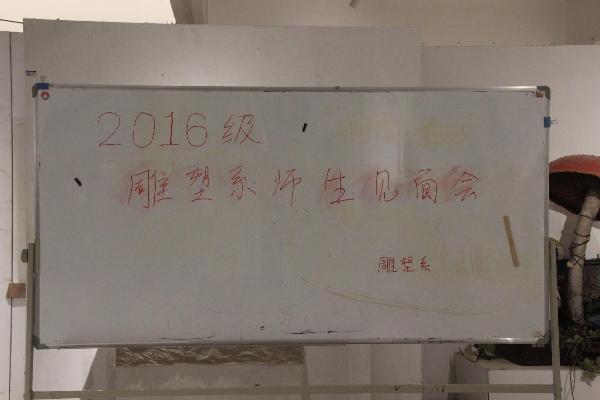 2016级
雕塑系师生见面会
雕塑系